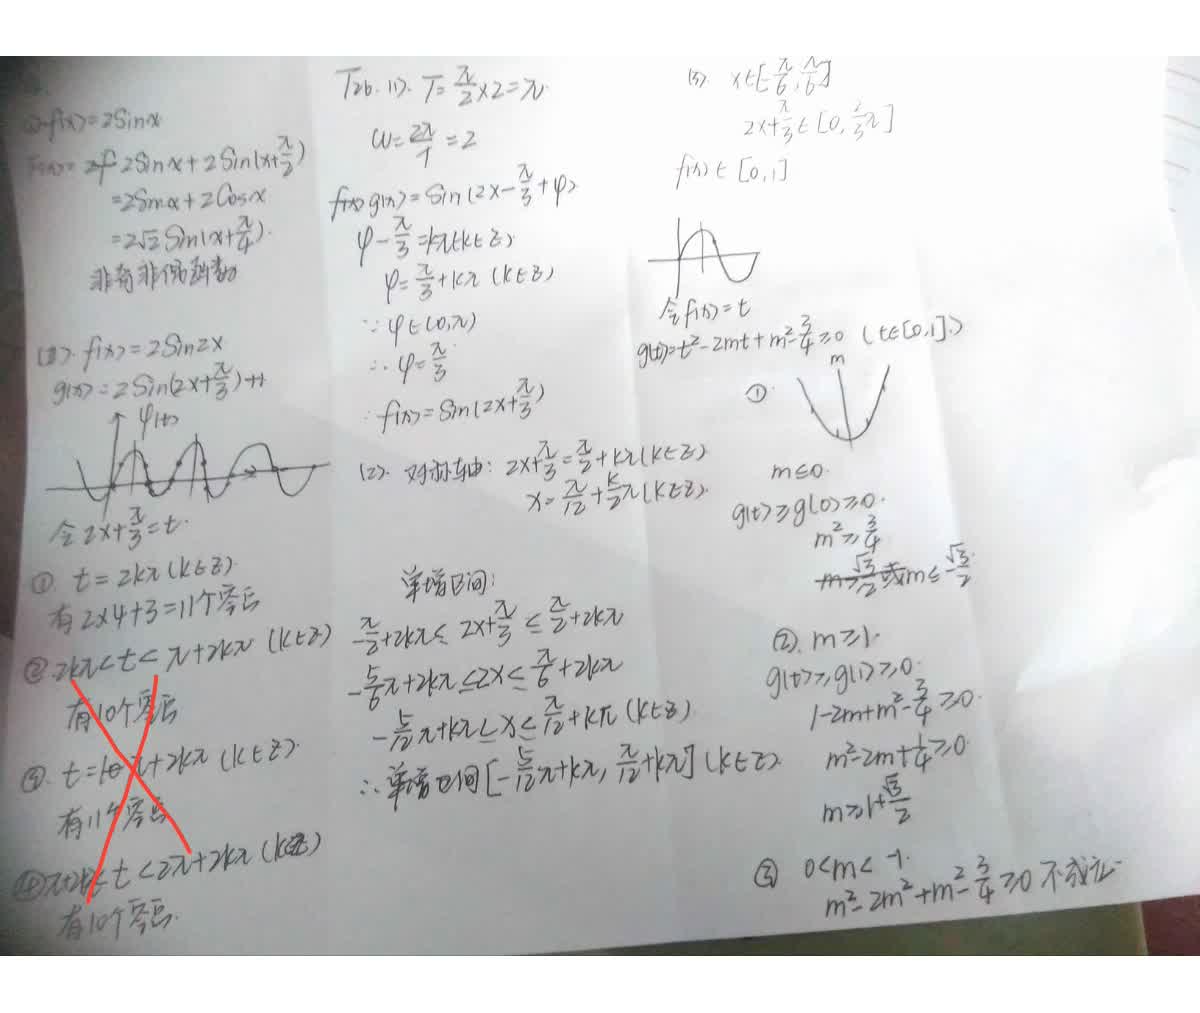 f(x)=2Sinx
2Sinx+2Sin(x+π/2)
=2Sinx+2Cosx
=2√2Sin(x+π/4).
非奇非偶函数
(2). f(x)=2Sin2x
g(x)=2Sin(2x+π/3)+1
φ(t)
令2x+π/3=t.
① t=2kπ(k∈Z)
有2×4+3=11个零点
② 2kπ<t<π+2kπ (k∈Z)
有10个零点
③. t=π+2kπ (k∈Z).
有11个零点
④π+2kπ<t<2π+2kπ(k∈Z)
有10个零点.
T26. (1). T=π/2×2=π.
ω=2π/T=2
g(x)=Sin(2x-π/3+φ)
φ-π/3=kπ(k∈Z)
φ=π/3+kπ (k∈Z)
∵φ∈(0,π)
∴φ=π/3
f(x)=Sin(2x+π/3)
(2). 对称轴: 2x+π/3=π/2+kπ(k∈Z)
x=π/12+k/2π(k∈Z).
单增区间:
-π/2+2kπ≤2x+π/3≤π/2+2kπ
-5/6π+2kπ≤2x≤π/6+2kπ
-5/12π+kπ≤x≤π/12+kπ(k∈Z)
∴单增区间[-5/12π+kπ, π/12+kπ](k∈Z)
(3). x∈[-π/6,π/6]
2x+π/3∈[0,2/3π]
f(x)∈[0,1]
令f(x)=t
g(t)=t²-2mt+m²-3/4≥0 (t∈[0,1].)
① m
m≤0.
g(t)≥g(0)≥0.
m²≥3/4
m≥√3/2或m≤-√3/2
(2). m≥1.
g(t)≥g(1)≥0.
1-2m+m²-3/4≥0.
m²-2m+1/4≥0.
m≥1+√3/2
③ 0<m<1.
m²-2m²+m²-3/4≥0 不成立